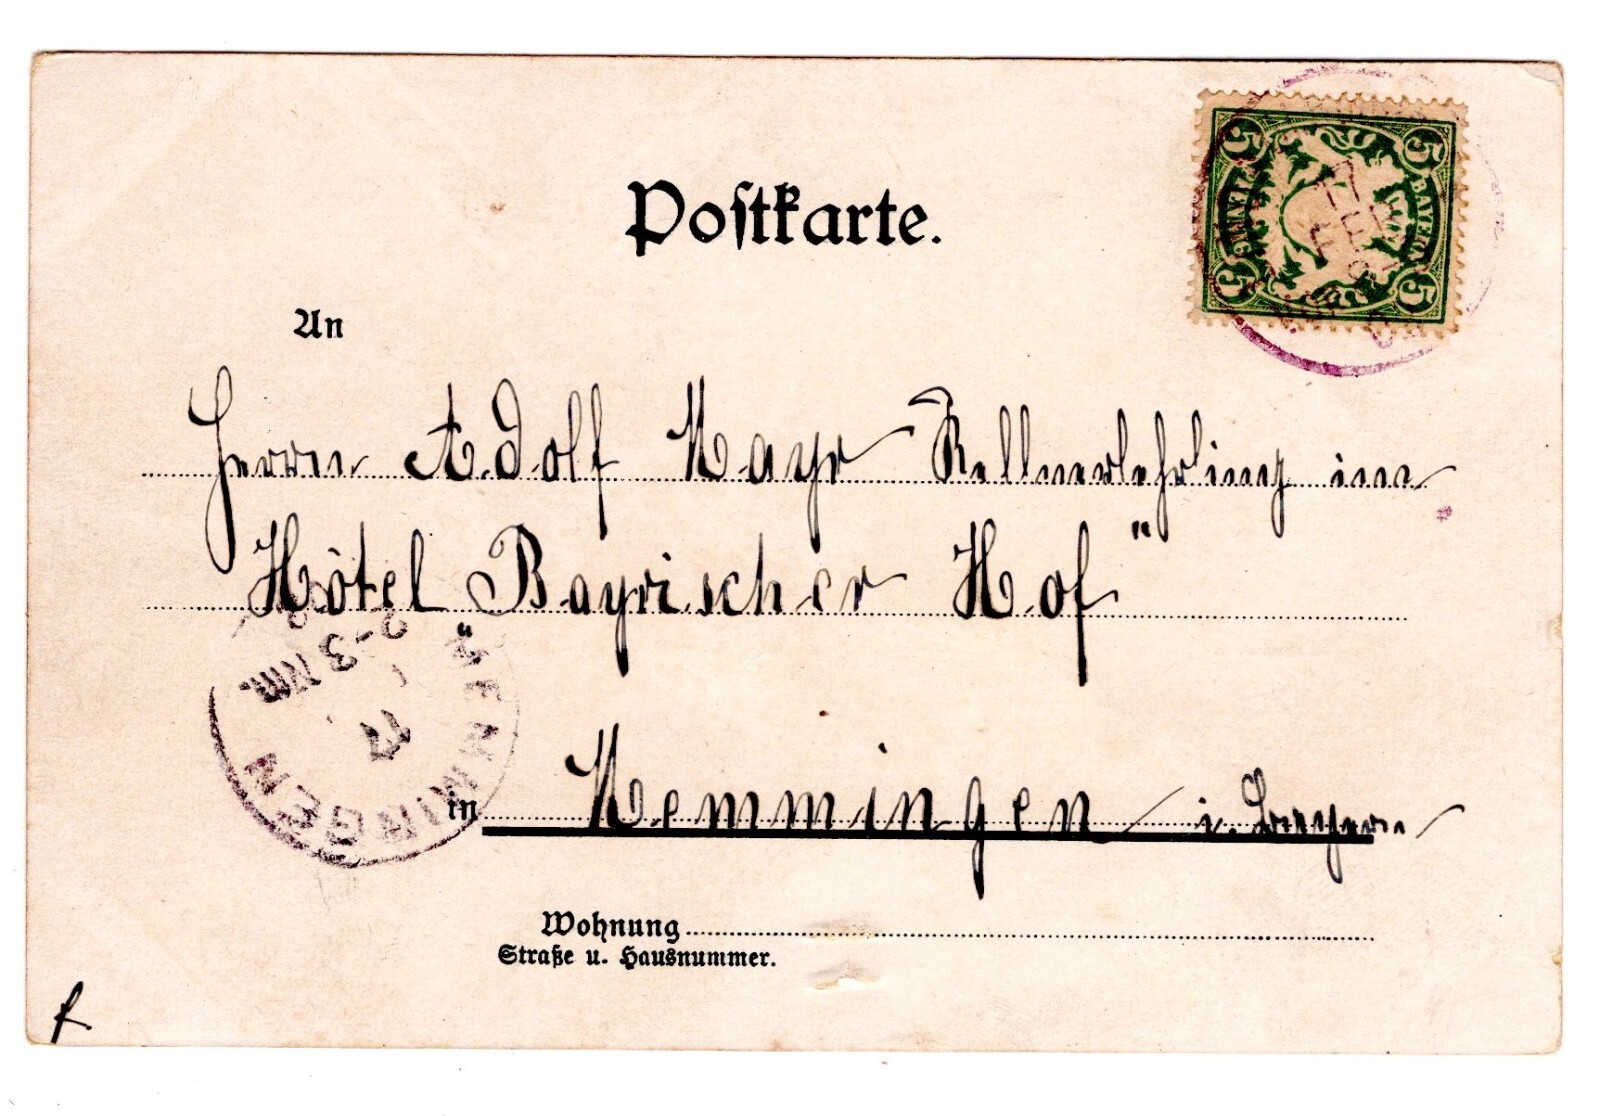 Postkarte.
5 5
BAYERN
5 5
17 FEB
An
Herrn Adolf Mayr Kellnerlehrling im
Hôtel "Bayrischer Hof"
2-3 Nm.
17
MEMMINGEN
in Memmingen i. Bayern
Wohnung
Straße u. Hausnummer.